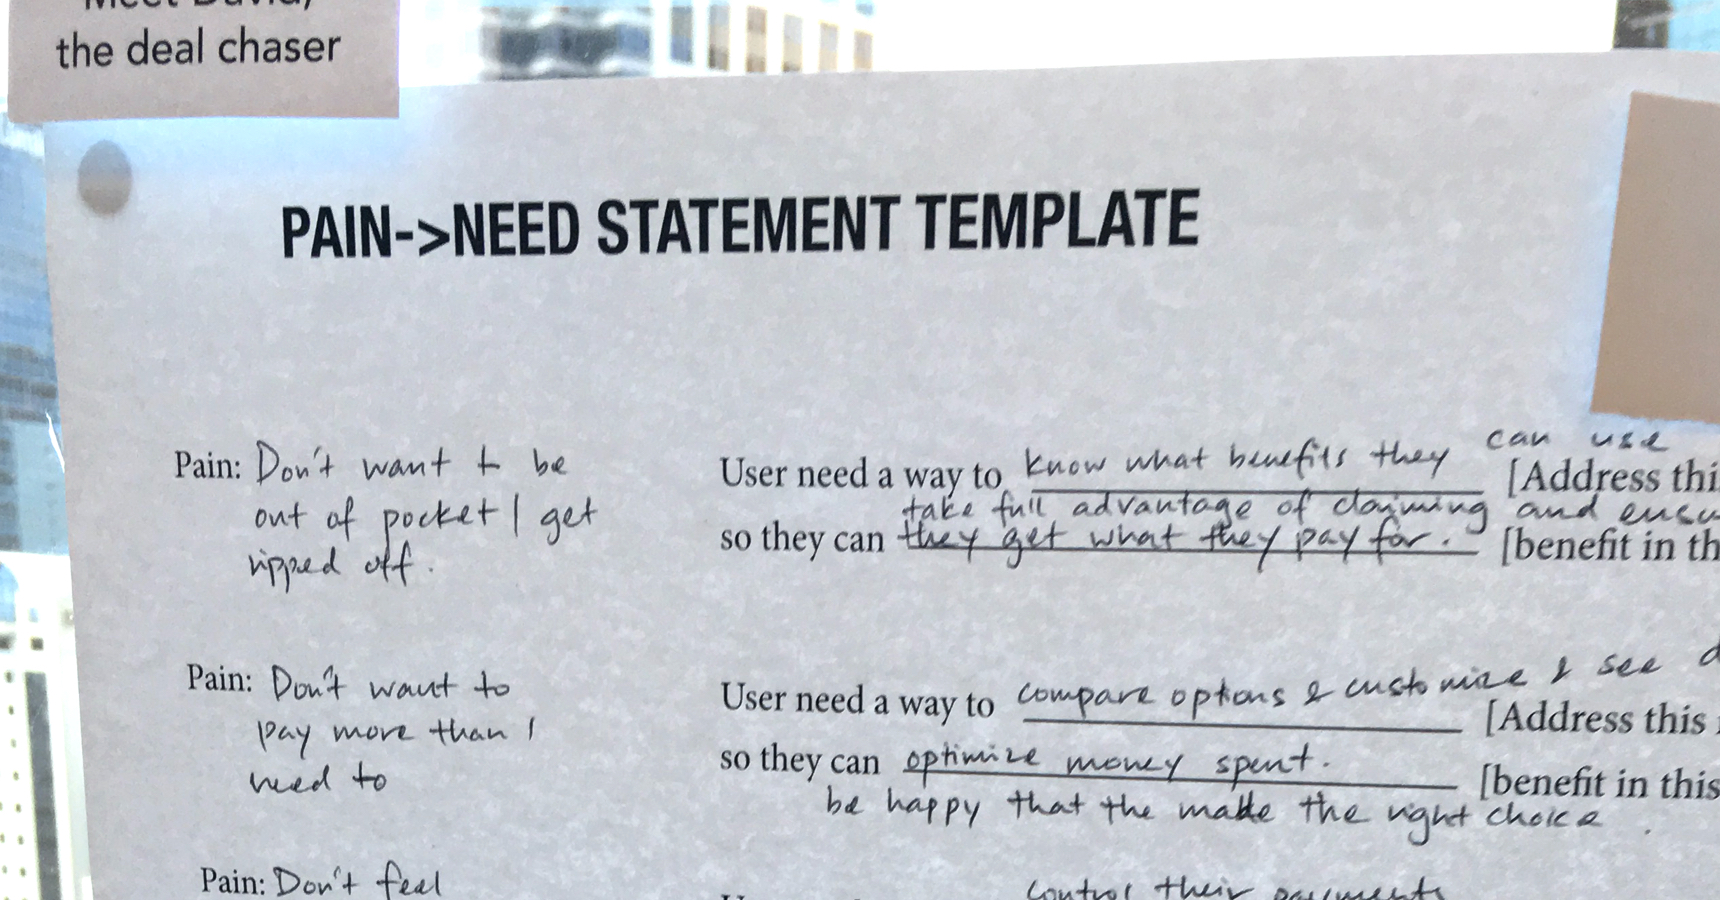 Meet David,
the deal chaser
PAIN->NEED STATEMENT TEMPLATE
can use
Pain: Don't want to be
User need a way to know what benefits they [Address thi
out of pocket / get
take full advantage of claiming and ensu
so they can they get what they pay for. [benefit in th
ripped off.
Pain: Don't want to
User need a way to compare options & customize & see d
[Address this
pay more than I
so they can optimize money spent. [benefit in this
need to
be happy that the make the right choice.
Pain: Don't feel
control their payments